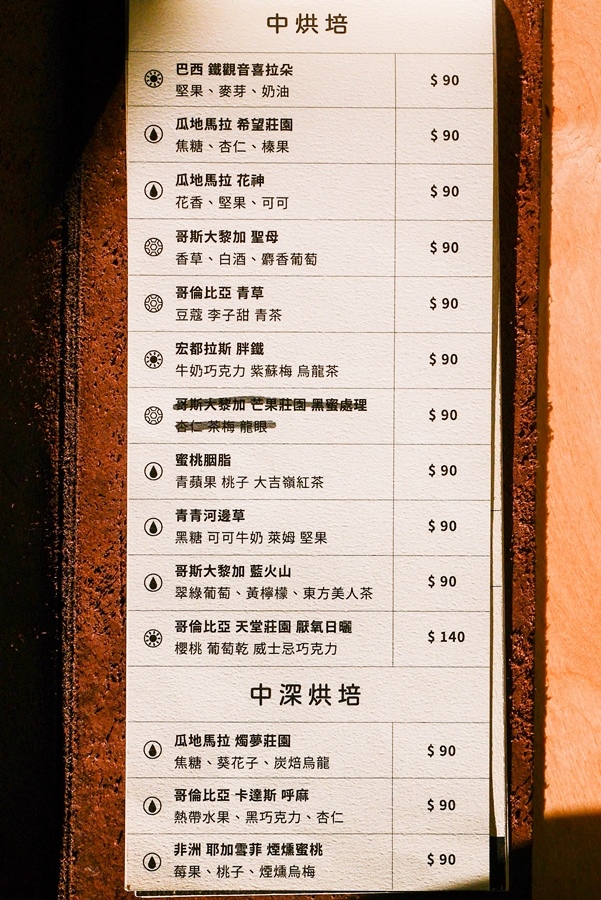 中烘培
巴西 鐵觀音喜拉朵
$ 90
堅果、麥芽、奶油
瓜地馬拉 希望莊園
$ 90
焦糖、杏仁、榛果
瓜地馬拉 花神
$ 90
花香、堅果、可可
哥斯大黎加 聖母
$ 90
香草、白酒、麝香葡萄
哥倫比亞 青草
$ 90
豆蔻 李子甜 青茶
宏都拉斯 胖鐵
$ 90
牛奶巧克力 紫蘇梅 烏龍茶
哥斯大黎加 芒果莊園 黑蜜處理
$ 90
杏仁 茶梅 龍眼
蜜桃胭脂
$ 90
青蘋果 桃子 大吉嶺紅茶
青青河邊草
$ 90
黑糖 可可牛奶 萊姆 堅果
哥斯大黎加 藍火山
$ 90
翠綠葡萄、黃檸檬、東方美人茶
哥倫比亞 天堂莊園 厭氧日曬
$ 140
櫻桃 葡萄乾 威士忌巧克力
中深烘培
瓜地馬拉 燭夢莊園
$ 90
焦糖、葵花子、炭焙烏龍
哥倫比亞 卡達斯 呼麻
$ 90
熱帶水果、黑巧克力、杏仁
非洲 耶加雪菲 煙燻蜜桃
$ 90
莓果、桃子、煙燻烏梅